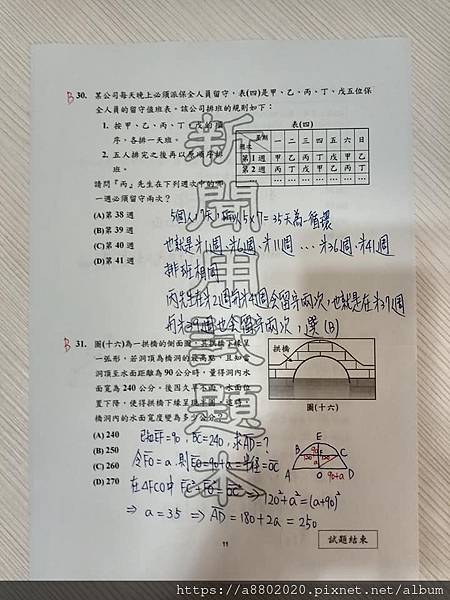 B 30. 某公司每天晚上必須派保全人員留守,表(四)是甲、乙、丙、丁、戊五位保
全人員的留守值班表。該公司排班的規則如下:
1. 按甲、乙、丙、丁、戊的順
序,各排一天班。
2. 五人排完之後再以原順序排
班。
表(四)
星期 一 二 三 四 五 六 日
週次
第1週 甲 乙 丙 丁 戊 甲 乙
第2週 丙 丁 戊 甲 乙 丙 丁
… … … … … … … …
請問『丙』先生在下列週次中的哪
一週必須留守兩次?
(A)第 38 週
(B)第 39 週
(C)第 40 週
(D)第 41 週
5個人,7天,所以5×7=35天為一循環
也就是第1週、第6週、第11週 … 第36週、第41週
排班相同
丙先生在第2週與第4週會留守兩次,也就是在第37週
與第39週也會留守兩次,選(B)
新聞用試題本
B 31. 圖(十六)為一拱橋的側面圖,其拱橋下緣呈
一弧形,若洞頂為橋洞的最高點,且知當
洞頂至水面距離為 90 公分時,量得洞內水
面寬為 240 公分。後因久旱不雨,水面位
置下降,使得拱橋下緣呈現半圓,這時,
橋洞內的水面寬度變為多少公分?
(A) 240
(B) 250
(C) 260
(D) 270
拱橋
圖(十六)
已知EF=90,BC=240,求AD=?
令FO=a,則EO=90+a=半徑=OC
在△FCO中 FC²+FO²=OC² ⇒ 120²+a²=(a+90)²
⇒ a=35 ⇒ AD=180+2a=250
E
B F C
A O D
90
120 120
a
90+a
11
試題結束
https://a8802020.pixnet.net/album